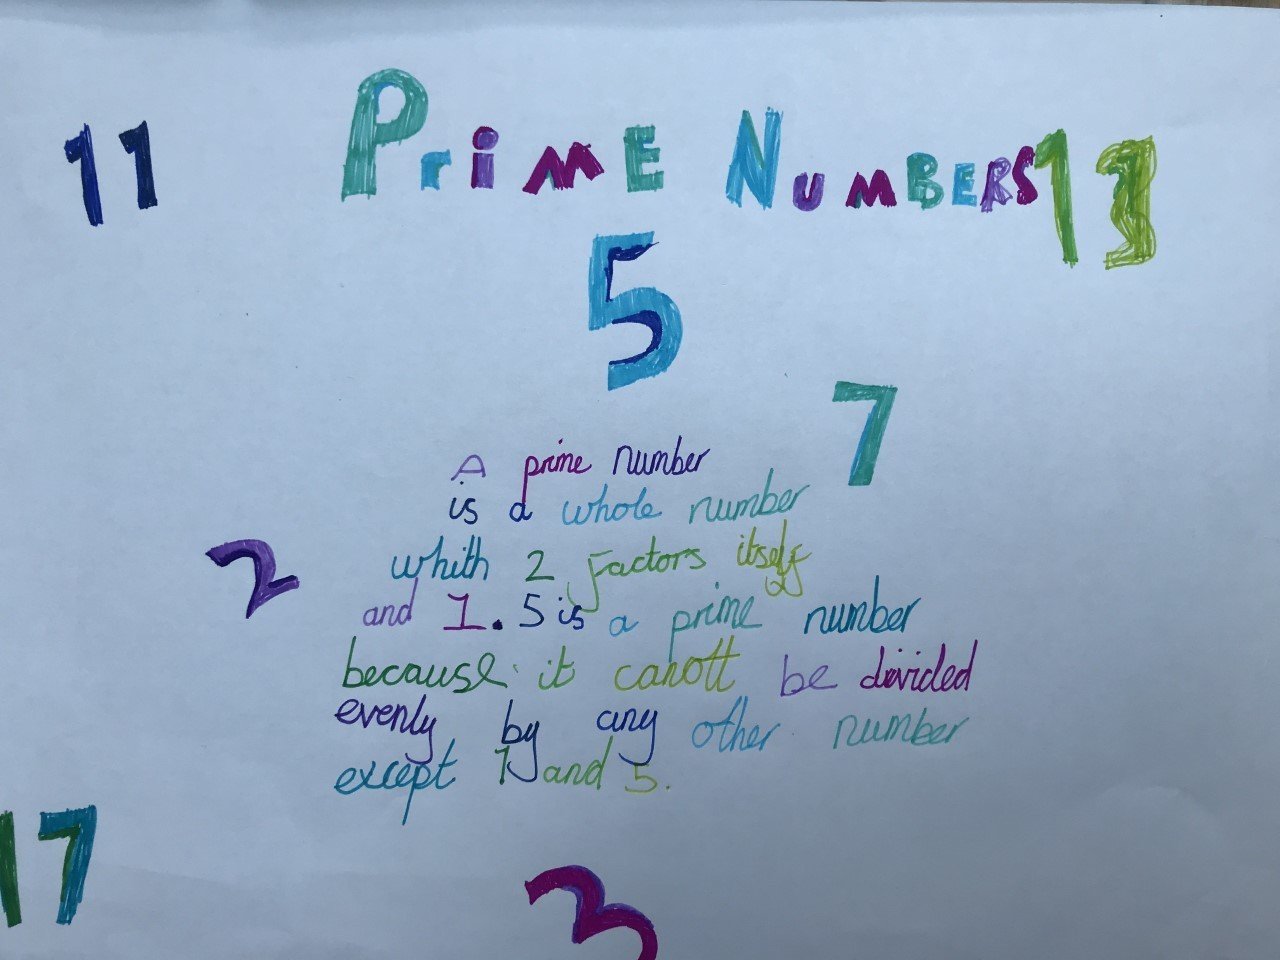 11 PriME NUMBERS 13
5
7
A prime number
is a whole number
whith 2 factors itself
2
and 1. 5 is a prime number
because it canott be divided
evenly by any other number
except 1 and 5.
17
3